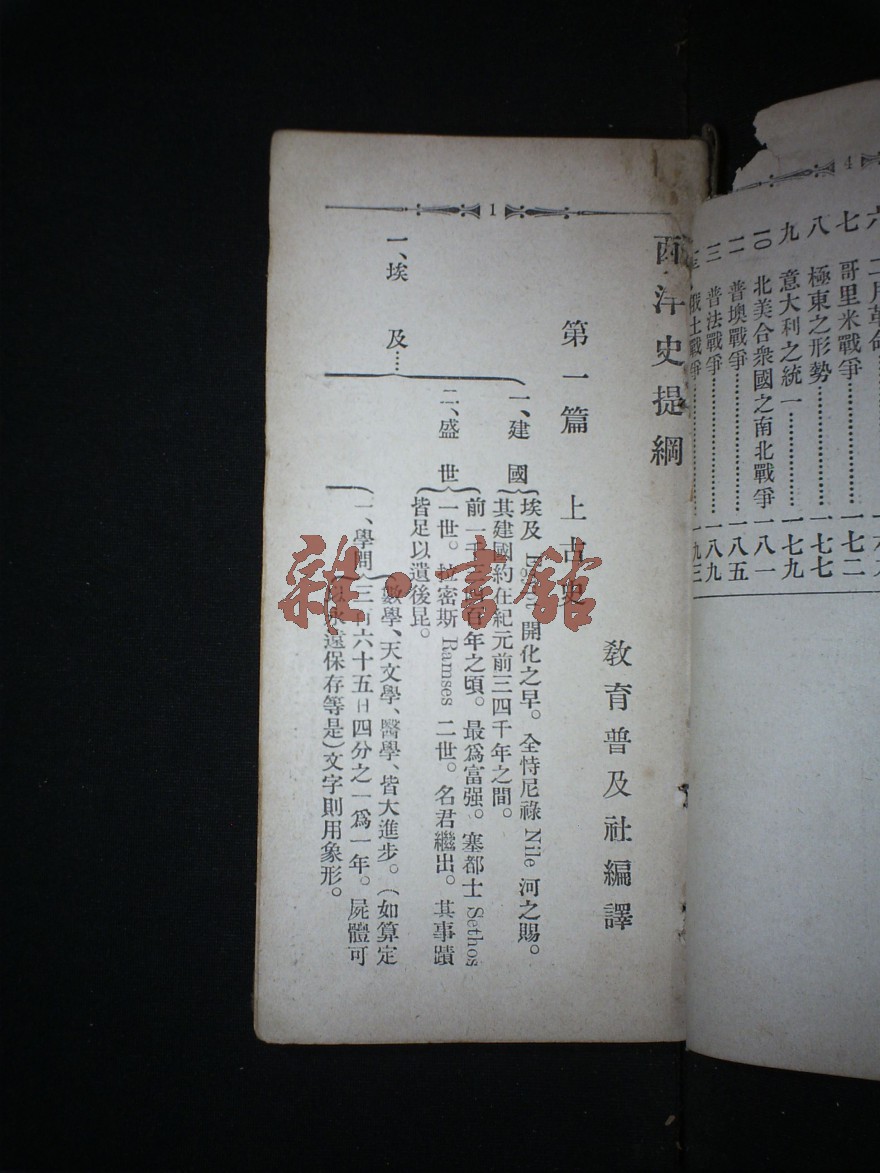 4
六 二月革命……
七 哥里米戰爭……一七二
八 極東之形勢……一七七
九 意大利之統一……一七九
一〇 北美合衆國之南北戰爭……一八一
一一 普墺戰爭……一八五
一二 普法戰爭……一八九
一三 俄土戰爭……一九三
1
西洋史提綱
教育普及社編譯
第一篇 上古史
一、埃及……
一、建國
埃及 開化之早。全恃尼祿 Nile 河之賜。
其建國約在紀元前三四千年之間。
二、盛世
前一千 百年之頃。最爲富强。塞都士 Sethos
一世。拉密斯 Ramses 二世。名君繼出。其事蹟
皆足以遺後昆。
一、學問
數學、天文學、醫學、皆大進步。(如算定
三百六十五日四分之一爲一年。屍體可
以永遠保存等是)文字則用象形。
雜·書館